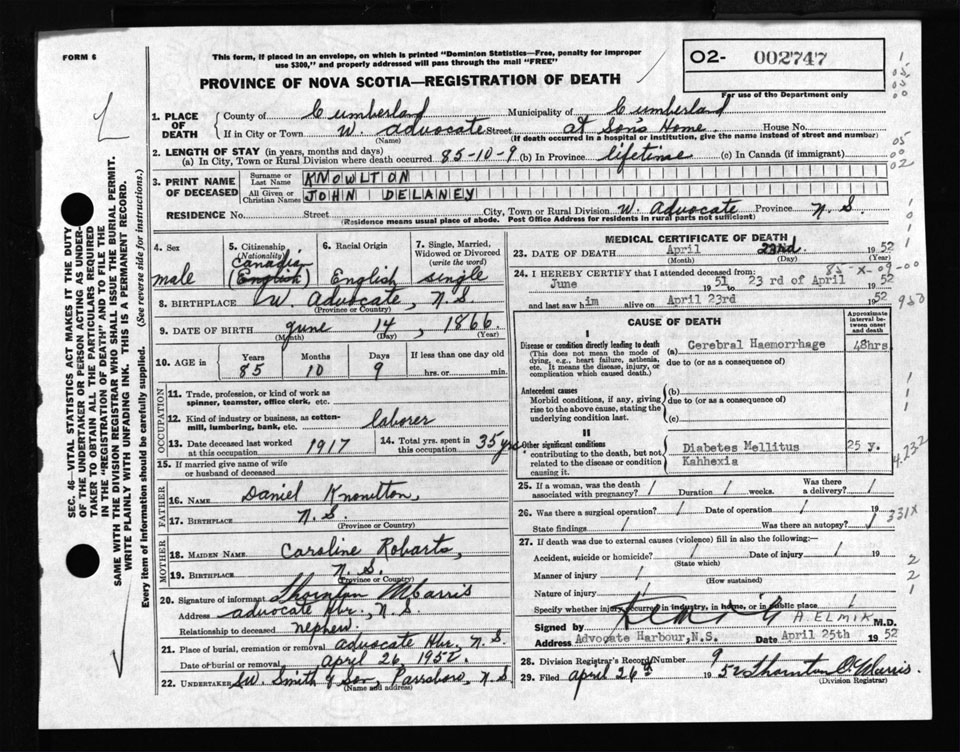 FORM 6
This form, if placed in an envelope, on which is printed "Dominion Statistics—Free, penalty for improper
use $300," and properly addressed will pass through the mail "FREE"
PROVINCE OF NOVA SCOTIA—REGISTRATION OF DEATH
O2- 002747
For use of the Department only
1. PLACE OF DEATH County of Cumberland Municipality of Cumberland
If in City or Town W. Advocate Street at Son's Home. House No.
(Name) (If death occurred in a hospital or institution, give the name instead of street and number)
2. LENGTH OF STAY (in years, months and days)
(a) In City, Town or Rural Division where death occurred 85-10-9 (b) In Province lifetime (c) In Canada (if immigrant)
3. PRINT NAME OF DECEASED Surname or Last Name KNOWLTON
All Given or Christian Names JOHN DELANEY
RESIDENCE No. Street City, Town or Rural Division W. Advocate Province N.S.
(Residence means usual place of abode. Post Office Address for residents in rural parts not sufficient)
4. Sex male
5. Citizenship (Nationality) Canadian (English)
6. Racial Origin English
7. Single, Married, Widowed or Divorced (write the word) single
8. BIRTHPLACE W. Advocate, N.S.
(Province or Country)
9. DATE OF BIRTH June 14, 1866
(Month) (Day) (Year)
10. AGE IN Years Months Days If less than one day old
85 10 9 hrs. or min.
OCCUPATION
11. Trade, profession, or kind of work as spinner, teamster, office clerk, etc.
12. Kind of industry or business, as cotton-mill, lumbering, bank, etc. laborer
13. Date deceased last worked at this occupation 1917
14. Total yrs. spent in this occupation 35 yrs.
15. If married give name of wife or husband of deceased
FATHER
16. NAME Daniel Knowlton,
17. BIRTHPLACE N.S.
(Province or Country)
MOTHER
18. MAIDEN NAME Caroline Robarts,
19. BIRTHPLACE N.S.
(Province or Country)
20. Signature of informant Thornton Morris
Address Advocate Hbr., N.S.
Relationship to deceased nephew.
21. Place of burial, cremation or removal Advocate Hbr, N.S.
Date of burial or removal April 26, 1952.
22. UNDERTAKER Smith & Son, Parrsboro, N.S.
(Name and address)
MEDICAL CERTIFICATE OF DEATH
23. DATE OF DEATH April 23rd 1952
(Month) (Day)
83-X-09-00
24. I HEREBY CERTIFY that I attended deceased from:
June 1951 to 23 rd of April 1952
and last saw him alive on April 23rd 1952
CAUSE OF DEATH
Approximate interval between onset and death
I
Disease or condition directly leading to death (a) Cerebral Haemorrhage 48hrs.
(This does not mean the mode of dying, e.g., heart failure, asthenia, etc. It means the disease, injury, or complication which caused death.)
due to (or as a consequence of)
Antecedent causes
Morbid conditions, if any, giving rise to the above cause, stating the underlying condition last.
(b)
due to (or as a consequence of)
(c)
II
Other significant conditions
contributing to the death, but not related to the disease or condition causing it.
Diabetes Mellitus 25 y.
Kahhexia
25. If a woman, was the death associated with pregnancy? / Duration / weeks. Was there a delivery? /
26. Was there a surgical operation? / Date of operation / 19
State findings / Was there an autopsy? /
331X
27. If death was due to external causes (violence) fill in also the following:—
Accident, suicide or homicide? / Date of injury / 19
(State which)
Manner of injury /
(How sustained)
Nature of injury /
Specify whether injury occurred in industry, in home, or in public place /
Signed by A. ELMIK M.D.
Address Advocate Harbour, N.S. Date April 25th 1952
28. Division Registrar's Record Number 9
29. Filed April 26th 1952 Thornton C. Morris.
(Division Registrar)
SEC. 46—VITAL STATISTICS ACT MAKES IT THE DUTY
OF THE UNDERTAKER OR PERSON ACTING AS UNDER-
TAKER TO OBTAIN ALL THE PARTICULARS REQUIRED
IN THE "REGISTRATION OF DEATH" AND TO FILE THE
SAME WITH THE DIVISION REGISTRAR WHO SHALL ISSUE THE BURIAL PERMIT.
WRITE PLAINLY WITH UNFADING INK. THIS IS A PERMANENT RECORD.
Every item of information should be carefully supplied. (See reverse side for instructions.)